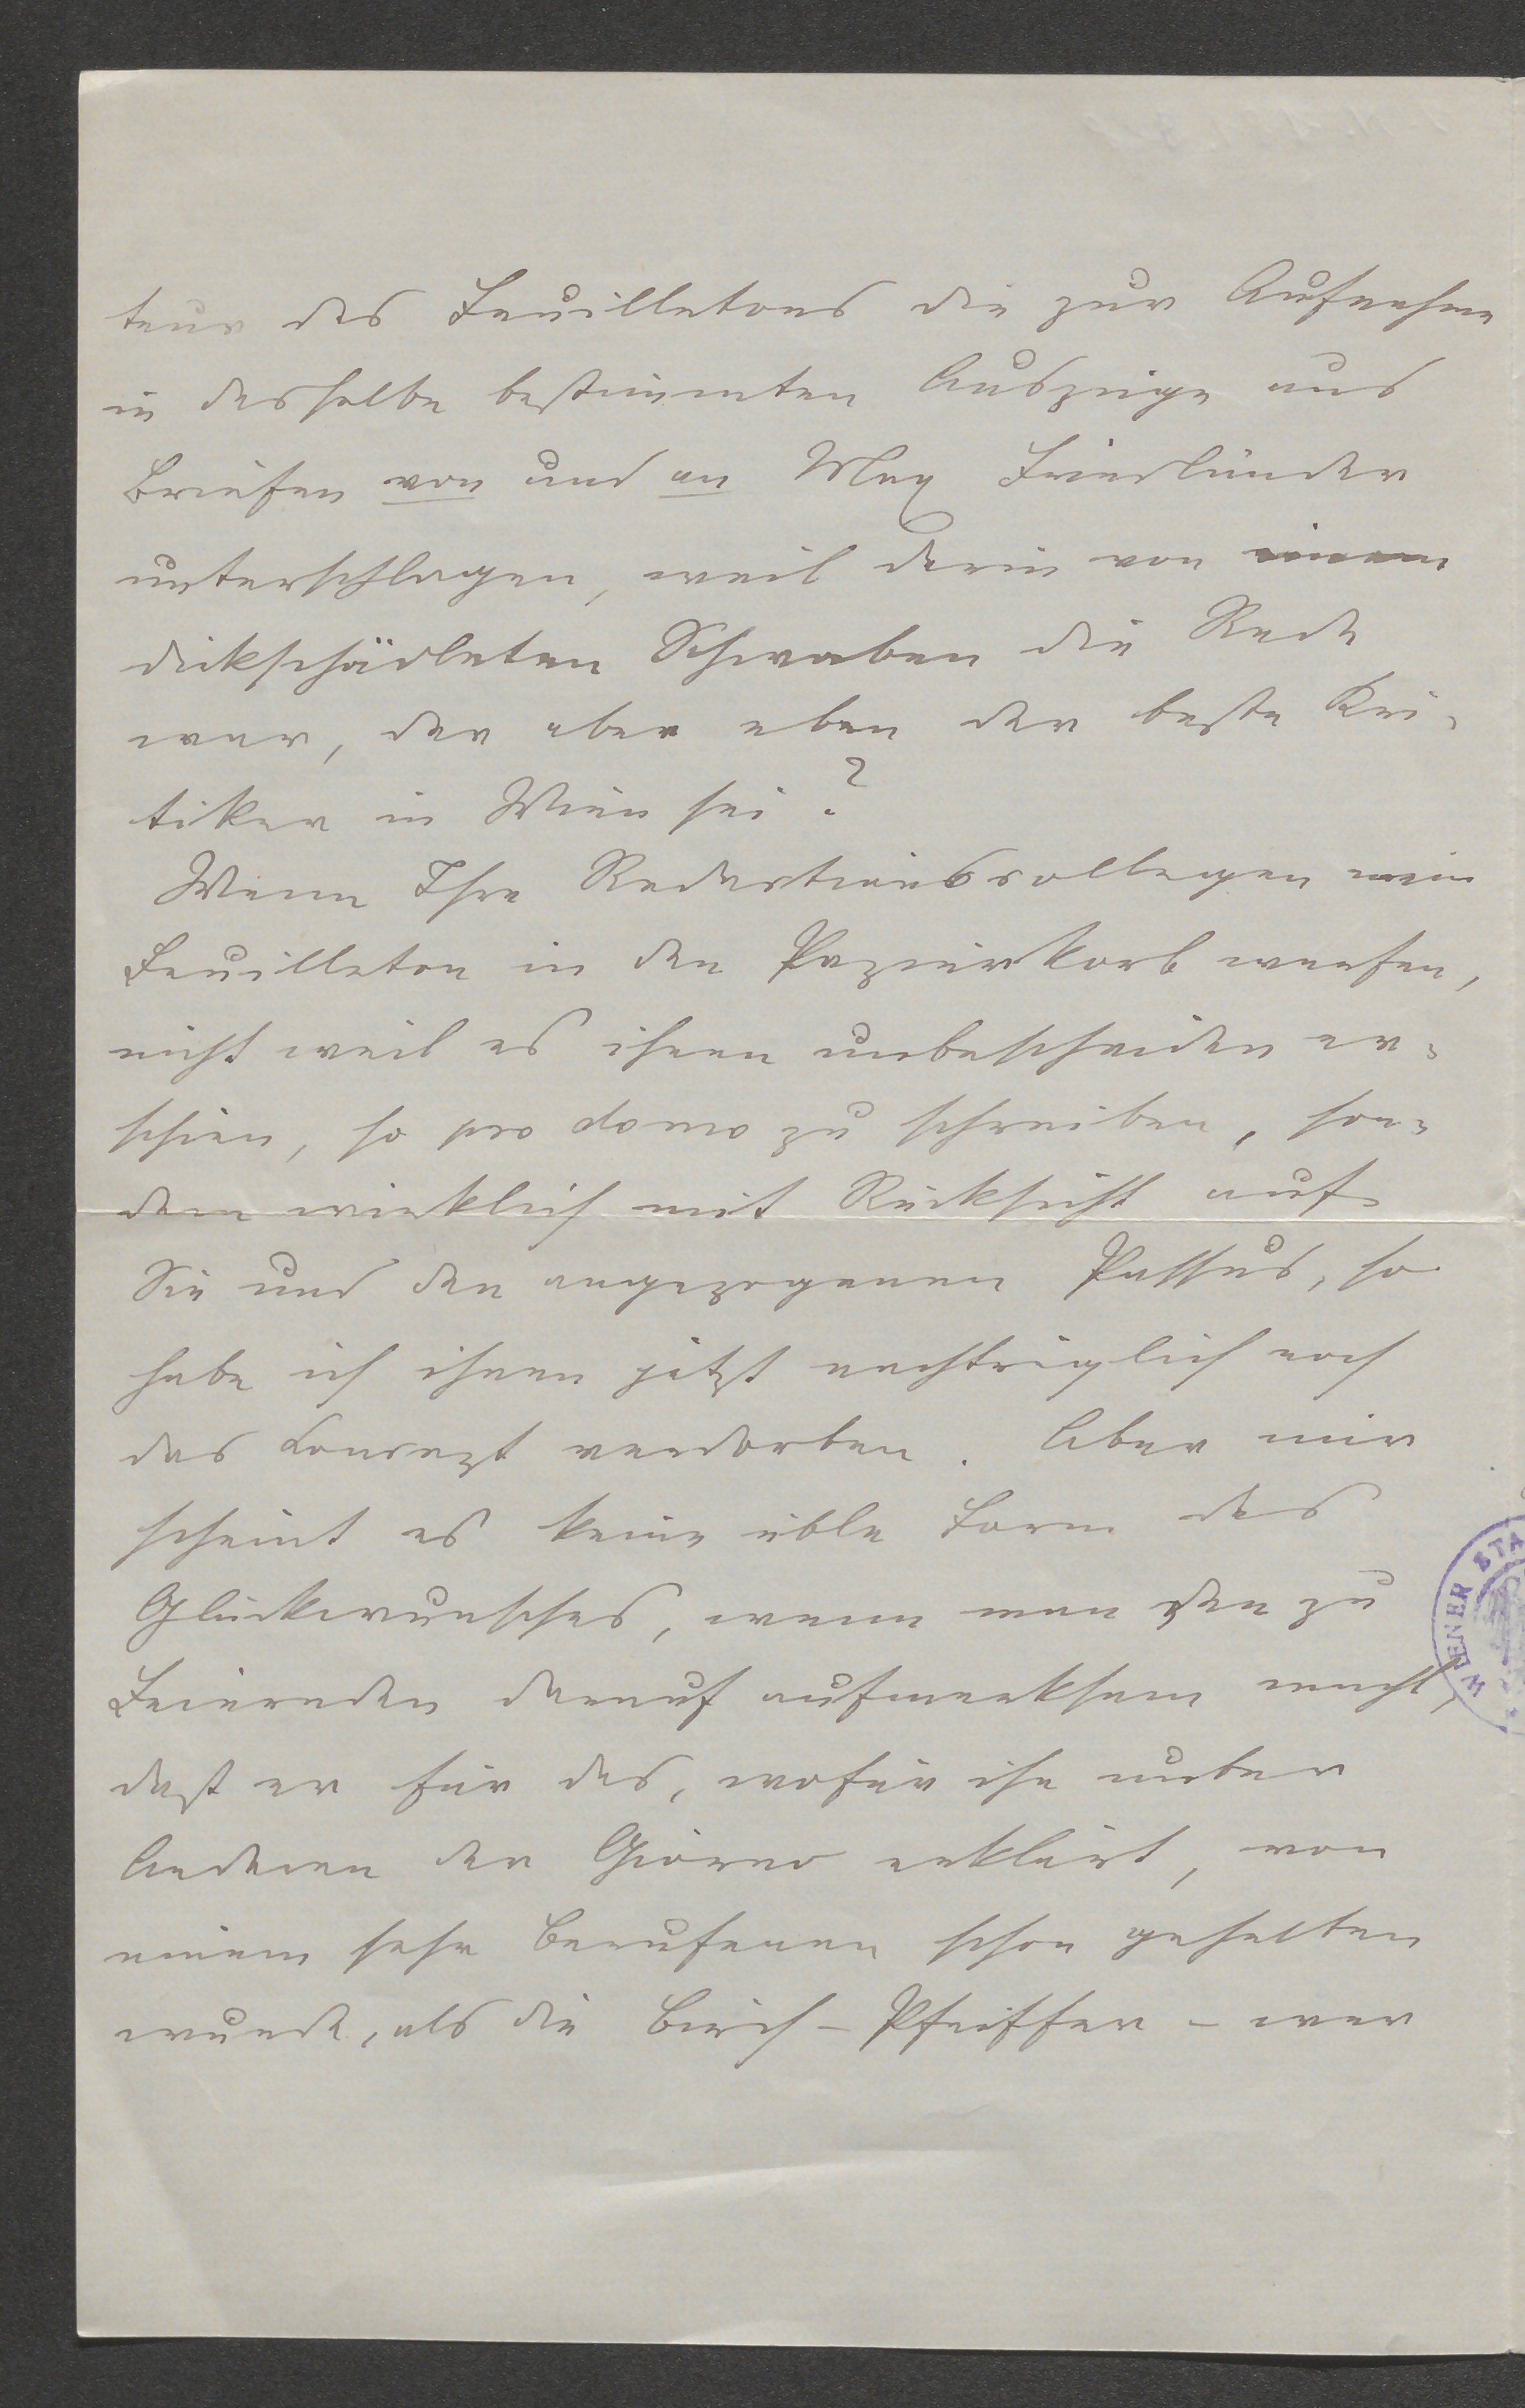 teur des Feuilletons die zur Aufnahme
in dasselbe bestimmten Auszüge aus
Briefen von und an Max Friedländer
unterschlagen, weil darin von einem
dickschädleten Schwaben die Rede
war, der aber eben der beste Kri-
tiker in Wien sei?
Wenn Ihre Redactionscollegen mein
Feuilleton in den Papierkorb warfen,
nicht weil es ihnen unbescheiden er-
schien, so pro domo zu schreiben, son-
dern wirklich mit Rücksicht auf
Sie und den angezogenen Passus, so
habe ich ihnen jetzt nachträglich noch
das Concept verdorben. Aber mir
scheint es keine üble Form des
Glückwunsches, wenn man den zu
Feiernden darauf aufmerksam macht,
daß er für das, wofür ihn unter
Anderen der erklärt, von
einem sehr Berufenen schon gehalten
wurde, als die Birch-Pfeiffer - war
WIENER STA